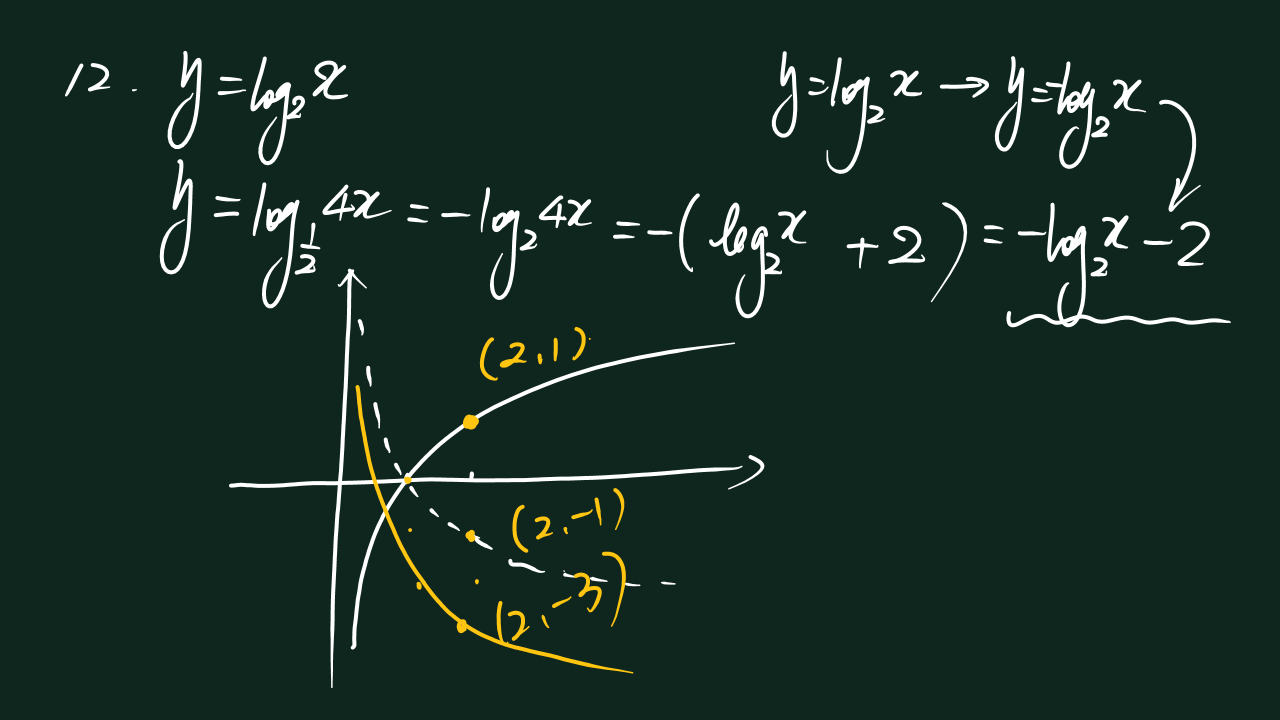 12. y = log₂x
y = log₂x → y = -log₂x
y = log_{1/2} 4x = -log₂4x = -(log₂x + 2) = -log₂x - 2
(2, 1)
(2, -1)
(2, -3)